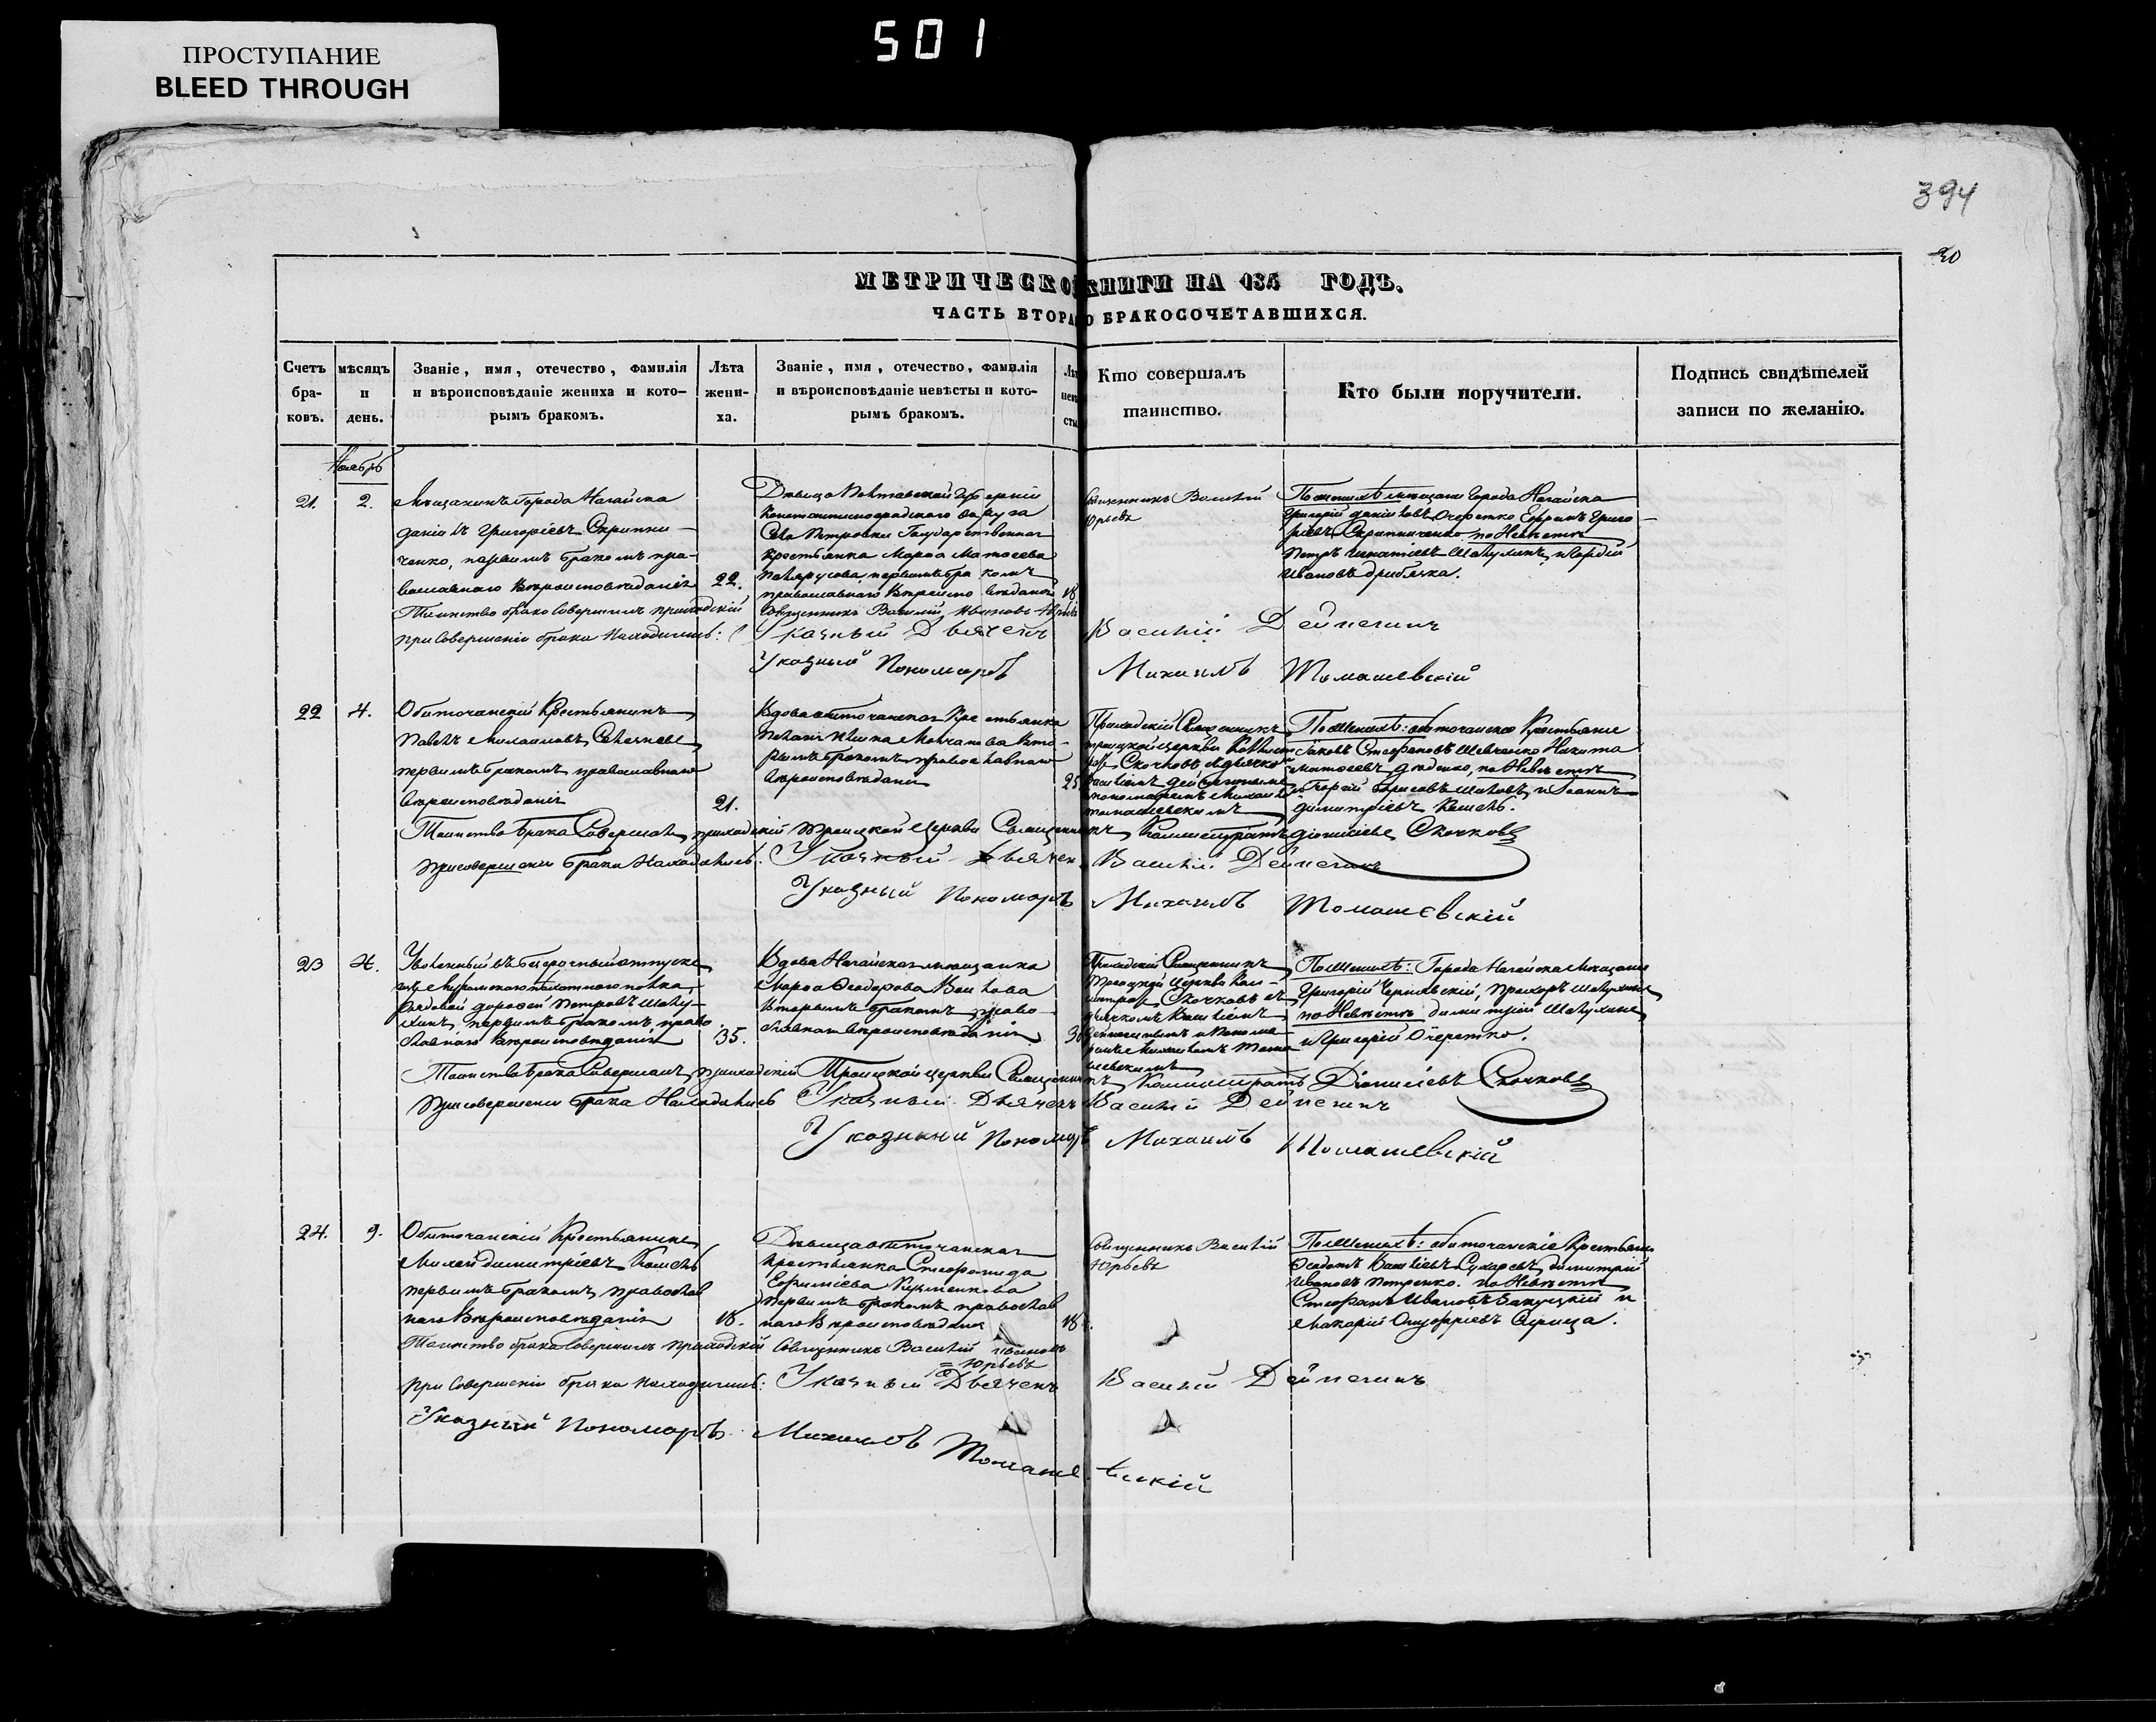 501
ПРОСТУПАНИЕ
BLEED THROUGH
394
30
МЕТРИЧЕСКОЙ КНИГИ НА 185 ГОДЪ.
ЧАСТЬ ВТОРАЯ О БРАКОСОЧЕТАВШИХСЯ.
Счетъ браковъ.
мѣсяцъ и день.
Званіе, имя, отечество, фамилія
и вѣроисповѣданіе жениха и кото-
рымъ бракомъ.
Лѣта
жени-
ха.
Званіе, имя, отечество, фамилія
и вѣроисповѣданіе невѣсты и кото-
рымъ бракомъ.
Кто совершалъ
таинство.
Кто были поручители.
Подпись свидѣтелей
записи по желанію.
Ноябрь
21.
2.
Мѣщанинъ Города Ногайска
Даніилъ Григоріевъ Скрипни-
ченко, первымъ бракомъ пра-
вославнаго Вѣроисповѣданія
22.
Дѣвица Полтавской Губерніи
Константиноградскаго Округа
Села Петровки Государственная
Крестьянка Марѳа Матѳеева
первымъ бракомъ
православнаго Вѣроисповѣданія
18
Священникъ Василій
Юрьевъ
По женихѣ мѣщане Города Ногайска
Григорій Даніиловъ Очеретко Ефремъ Григо-
ріевъ Скрипниченко по Невѣстѣ
Петръ Игнатіевъ Шалухинъ, и Сергѣй
Ивановъ Дрибязка.
Таинство брака Совершилъ приходскій Священникъ Василій Ивановъ Юрьевъ
при Совершеніи брака Находились: Указный Дьячекъ Василій Дейнегинъ
Указный Пономарь Михаилъ Томашевскій
22
4.
Обиточанскій Крестьянинъ
Павелъ Михаиловъ
первымъ бракомъ православнаго
вѣроисповѣданія
21.
Вдова обиточанская Крестьянка
Пелагія Молчанова вто-
рымъ бракомъ православнаго
вѣроисповѣданія
25
Приходскій Священникъ
троицкой церкви Каллист
рат Скочковъ съ дьячкомъ
Василіемъ Дейнегинымъ
и пономаремъ Михаиломъ
томашевскимъ
По Женихѣ: обиточанскіе Крестьяне
Іаковъ Стефановъ Шевченко Никита
Матѳеевъ Дяденко, по Невѣстѣ
Борисовъ Шаповъ, и Іоаннъ
Димитріевъ Кошель.
Таинство брака Совершалъ приходскій троицкой церкви Священникъ Каллистратъ Діонисіевъ Скочковъ
При совершеніи брака Находились: Указный Дьячекъ Василій Дейнегинъ
Указный Пономарь Михаилъ Томашевскій
23
4.
Уволенный въ безсрочный отпускъ
изъ полка,
Рядовой Дороѳей Петровъ Шалу-
хинъ, первымъ бракомъ право
славнаго вѣроисповѣданія
35.
Вдова Ногайская мѣщанка
Марѳа Ѳеодорова
вторымъ бракомъ право-
славнаго вѣроисповѣданія
30
Приходскій Священникъ
Троицкой церкви Кал-
листрат Скочковъ съ
дьячкомъ Василіемъ
Дейнегинымъ и Понома-
ремъ Михаиломъ Тома-
шевскимъ
По Женихѣ: Города Ногайска Мѣщане
Григорій Чернявскій, Прохоръ Шалухинъ
по Невѣстѣ Димитрій Шалухинъ
и Григорій Очеретко.
Таинство брака Совершалъ приходскій Троицкой церкви Священникъ Каллистратъ Діонисіевъ Скочковъ
При совершеніи брака Находились Указный Дьячекъ Василій Дейнегинъ
Указный Пономарь Михаилъ Томашевскій
24.
9.
Обиточанскій Крестьянинъ
Михей Димитріевъ Кошель
первымъ бракомъ православ
наго Вѣроисповѣданія
18.
Дѣвица обиточанская
крестьянка Стефанида
Ефиміева
Первымъ бракомъ православ
наго Вѣроисповѣданія
18.
Священникъ Василій
Юрьевъ
По Женихѣ: обиточанскіе Крестьяне
Ѳедотъ Василіевъ Сухаревъ, Димитрій
Ивановъ Петренко. по Невѣстѣ
Стефанъ Ивановъ Закуцкій и
Макарій Онуфріевъ Сирица.
Таинство брака Совершилъ приходскій Священникъ Василій Ивановъ
= Юрьевъ
при Совершеніи брака находились: Указный Дьячекъ Василій Дейнегинъ
Указный Пономарь Михаилъ Томашевскій